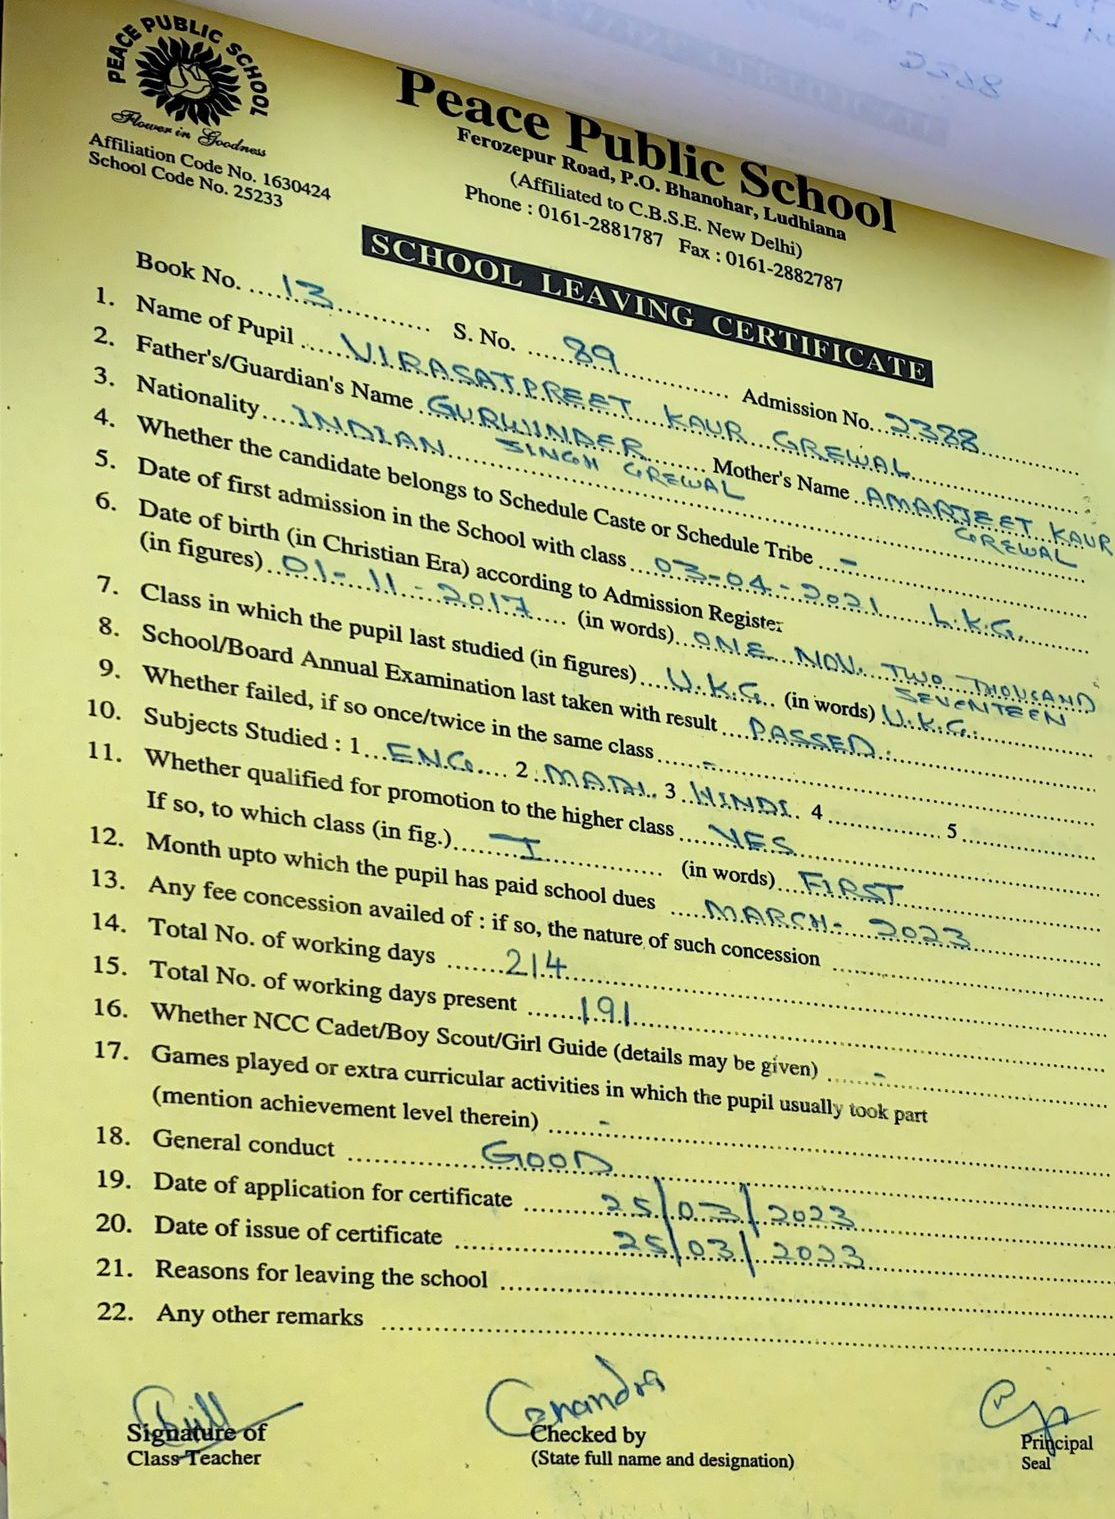 PEACE PUBLIC SCHOOL
Flower in Goodness
Affiliation Code No. 1630424
School Code No. 25233
Peace Public School
Ferozepur Road, P.O. Bhanohar, Ludhiana
(Affiliated to C.B.S.E. New Delhi)
Phone : 0161-2881787 Fax : 0161-2882787
SCHOOL LEAVING CERTIFICATE
Book No. 13 S. No. 89 Admission No. 2388
1. Name of Pupil VIRASATPREET KAUR GREWAL
2. Father's/Guardian's Name GURWINDER SINGH GREWAL Mother's Name AMARJEET KAUR GREWAL
3. Nationality INDIAN
4. Whether the candidate belongs to Schedule Caste or Schedule Tribe -
5. Date of first admission in the School with class 03-04-2021 L.K.G.
6. Date of birth (in Christian Era) according to Admission Register
(in figures) 01-11-2017 (in words) ONE NOV. TWO THOUSAND SEVENTEEN
7. Class in which the pupil last studied (in figures) U.K.G. (in words) U.K.G.
8. School/Board Annual Examination last taken with result PASSED.
9. Whether failed, if so once/twice in the same class -
10. Subjects Studied : 1 ENG. 2. MATH. 3 HINDI. 4 5
11. Whether qualified for promotion to the higher class YES
If so, to which class (in fig.) I (in words) FIRST
12. Month upto which the pupil has paid school dues MARCH- 2023
13. Any fee concession availed of : if so, the nature of such concession
14. Total No. of working days 214
15. Total No. of working days present 191
16. Whether NCC Cadet/Boy Scout/Girl Guide (details may be given) -
17. Games played or extra curricular activities in which the pupil usually took part
(mention achievement level therein) -
18. General conduct GOOD
19. Date of application for certificate 25/03/2023
20. Date of issue of certificate 25/03/2023
21. Reasons for leaving the school
22. Any other remarks
Signature of
Class Teacher
Checked by
(State full name and designation)
Principal
Seal